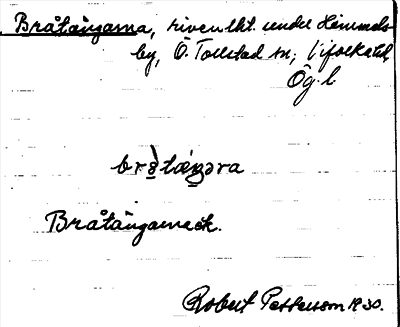 Bråtängarna, rivenlht. under Himmels-
by, Ö. Tollstad sn, Lysings hd,
Ög. l.
brå̀tæŋəra
Bråtängarna ek.
Robert Pettersson 1930.